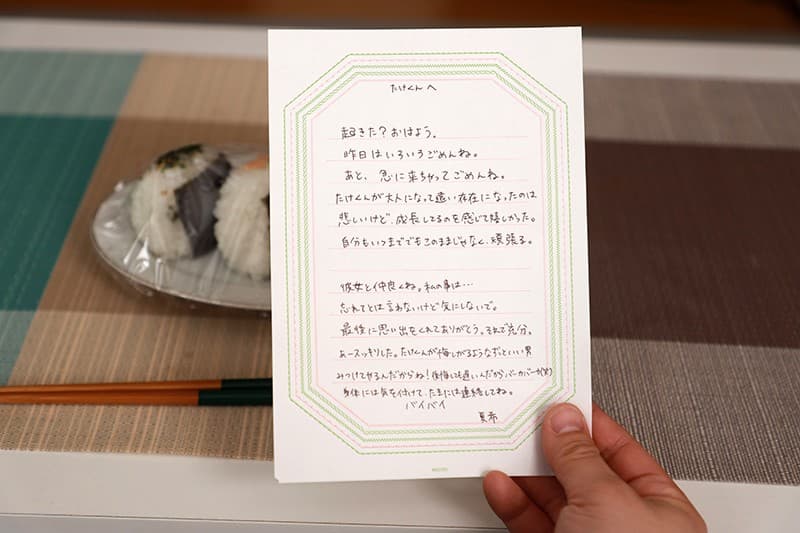 たけくんへ
起きた?おはよう。
昨日はいろいろごめんね。
あと、急に来ちゃってごめんね。
たけくんが大人になって遠い存在になったのは
悲しいけど、成長してるのを感じて嬉しかった。
自分もいつまでもこのままじゃなく、頑張る。
彼女と仲良くね。私の事は…
忘れてとは言わないけど気にしないで。
最後に思い出をくれてありがとう。それで充分。
あースッキリした。たけくんが悔しがるようなずっといい男
みつけてやるんだからね!後悔しても遅いんだからバーカバーカ(笑)
身体には気を付けて、たまには連絡してね。
バイバイ
夏希